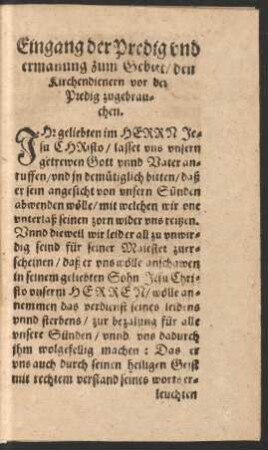 Eingang der Predig vnd
ermanung zum Gebett / den
Kirchendienern vor der
Predig zugebrau-
chen.
IHr geliebten im HERRN Je-
su CHRisto / lasset vns vnsern
getrewen Gott vnnd Vater an-
ruffen / vnd jn demütiglich bitten / daß
er sein angesicht von vnsern Sünden
abwenden wölle / mit welchen wir one
vnterlaß seinen zorn wider vns reitzen.
Vnnd dieweil wir leider all zu vnwir-
dig seind für seiner Maiestet zuer-
scheinen / daß er vns wölle anschawen
in seinem geliebten Sohn Jesu Chri-
sto vnserm HERREN / wölle an-
nemmen das verdienst seines leidens
vnnd sterbens / zur bezalung für alle
vnsere Sünden / vnnd vns dadurch
jhm wolgefellig machen: Das er
vns auch durch seinen heiligen Geist
mit rechtem verstand seines worts er-
leuchten